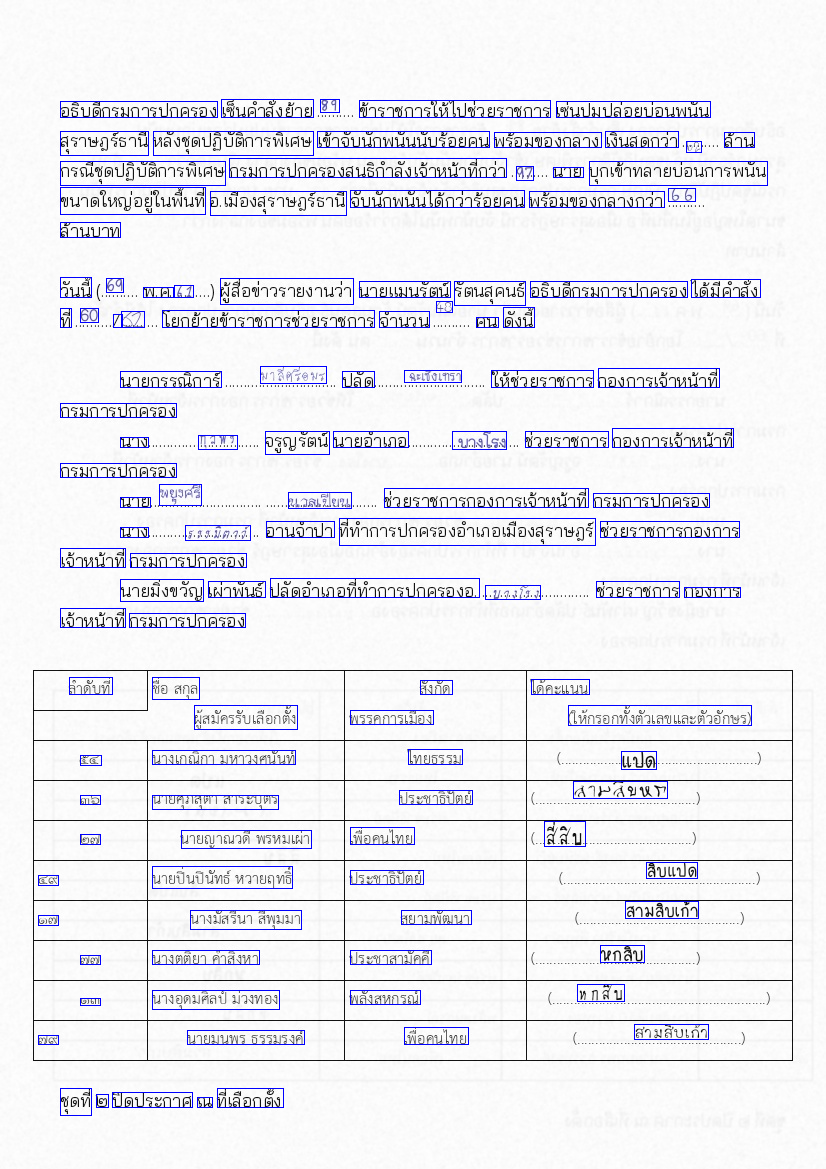 อธิบดีกรมการปกครอง เซ็นคำสั่งย้าย 89 ข้าราชการให้ไปช่วยราชการ เซ่นปมปล่อยบ่อนพนัน
สุราษฎร์ธานี หลังชุดปฏิบัติการพิเศษ เข้าจับนักพนันนับร้อยคน พร้อมของกลาง เงินสดกว่า ........ ล้าน
กรณีชุดปฏิบัติการพิเศษ กรมการปกครองสนธิกำลังเจ้าหน้าที่กว่า ........ นาย บุกเข้าทลายบ่อนการพนัน
ขนาดใหญ่อยู่ในพื้นที่ อ.เมืองสุราษฎร์ธานี จับนักพนันได้กว่าร้อยคน พร้อมของกลางกว่า 66
ล้านบาท
วันนี้ ( 69 พ.ศ. 61 ) ผู้สื่อข่าวรายงานว่า นายแมนรัตน์ รัตนสุคนธ์ อธิบดีกรมการปกครอง ได้มีคำสั่ง
ที่ 60 / 67 โยกย้ายข้าราชการช่วยราชการ จำนวน 40 คน ดังนี้
นายกรรณิการ์ มาลีศรีอมร ปลัด ฉะเชิงเทรา ให้ช่วยราชการ กองการเจ้าหน้าที่
กรมการปกครอง
นาง ........ จรูญรัตน์ นายอำเภอ บางโรง ช่วยราชการ กองการเจ้าหน้าที่
กรมการปกครอง
นาย พยุงศรี นวลเนียน ช่วยราชการกองการเจ้าหน้าที่ กรมการปกครอง
นาง ........ อานจำปา ที่ทำการปกครองอำเภอเมืองสุราษฎร์ ช่วยราชการกองการ
เจ้าหน้าที่ กรมการปกครอง
นายมิ่งขวัญ เผ่าพันธ์ ปลัดอำเภอที่ทำการปกครองอ. บางโรง ช่วยราชการ กองการ
เจ้าหน้าที่ กรมการปกครอง
ลำดับที่ ชื่อ สกุล สังกัด ได้คะแนน
ผู้สมัครรับเลือกตั้ง พรรคการเมือง (ให้กรอกทั้งตัวเลขและตัวอักษร)
๕๔ นางเกณิกา มหาวงศนันท์ ไทยธรรม ( แปด )
๓๖ นายศุภสุตา สาระบุตร ประชาธิปัตย์ ( สามสิบหก )
๒๗ นายญาณวดี พรหมเผ่า เพื่อคนไทย ( สี่สิบ )
๔๙ นายปิ่นปินัทธ์ หวายฤทธิ์ ประชาธิปัตย์ ( สิบแปด )
๑๗ นางมัสรีนา สีพุมมา สยามพัฒนา ( สามสิบเก้า )
๗๗ นางตติยา คำสิงหา ประชาสามัคคี ( หกสิบ )
๑๓ นางอุดมศิลป์ ม่วงทอง พลังสหกรณ์ ( หกสิบ )
๗๙ นายมนพร ธรรมรงค์ เพื่อคนไทย ( สามสิบเก้า )
ชุดที่ ๒ ปิดประกาศ ณ ที่เลือกตั้ง